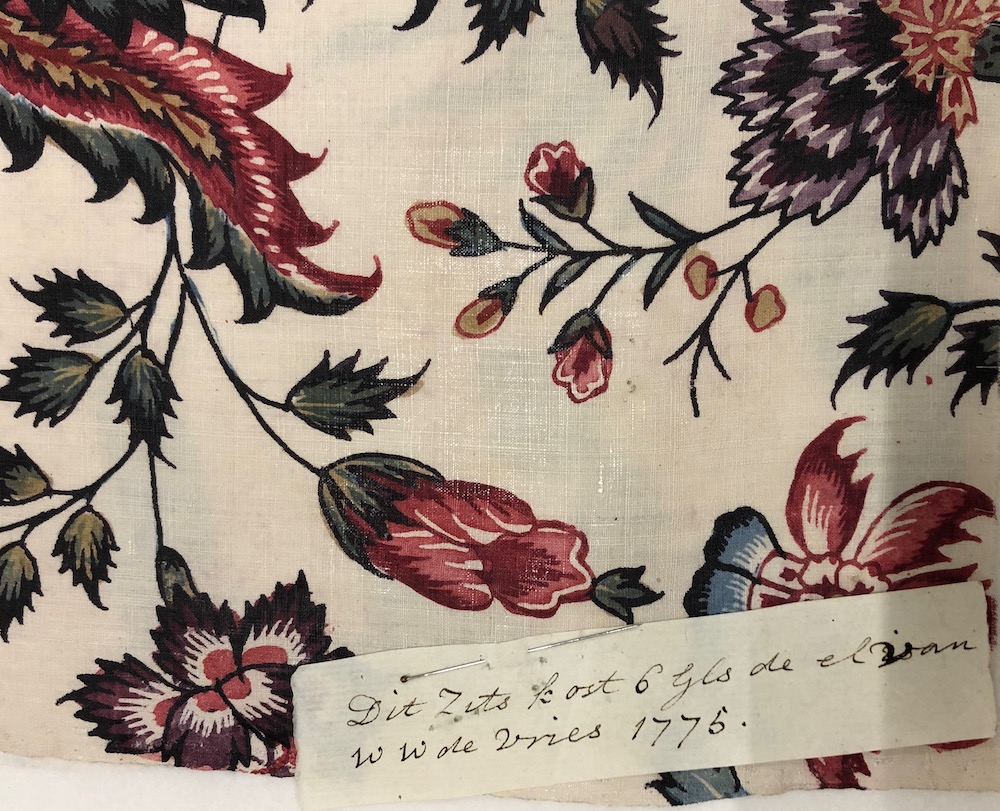 Dit Zits kost 6 Gls de el van
W W de Vries 1775.